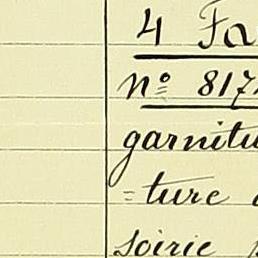 4 Fa
nº 817
garnitu
=ture
soirie